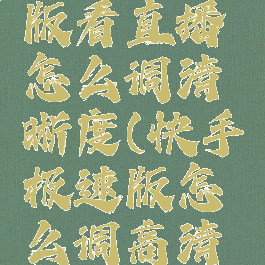 版看直播
怎么调清
晰度(快手
极速版怎
么调高清